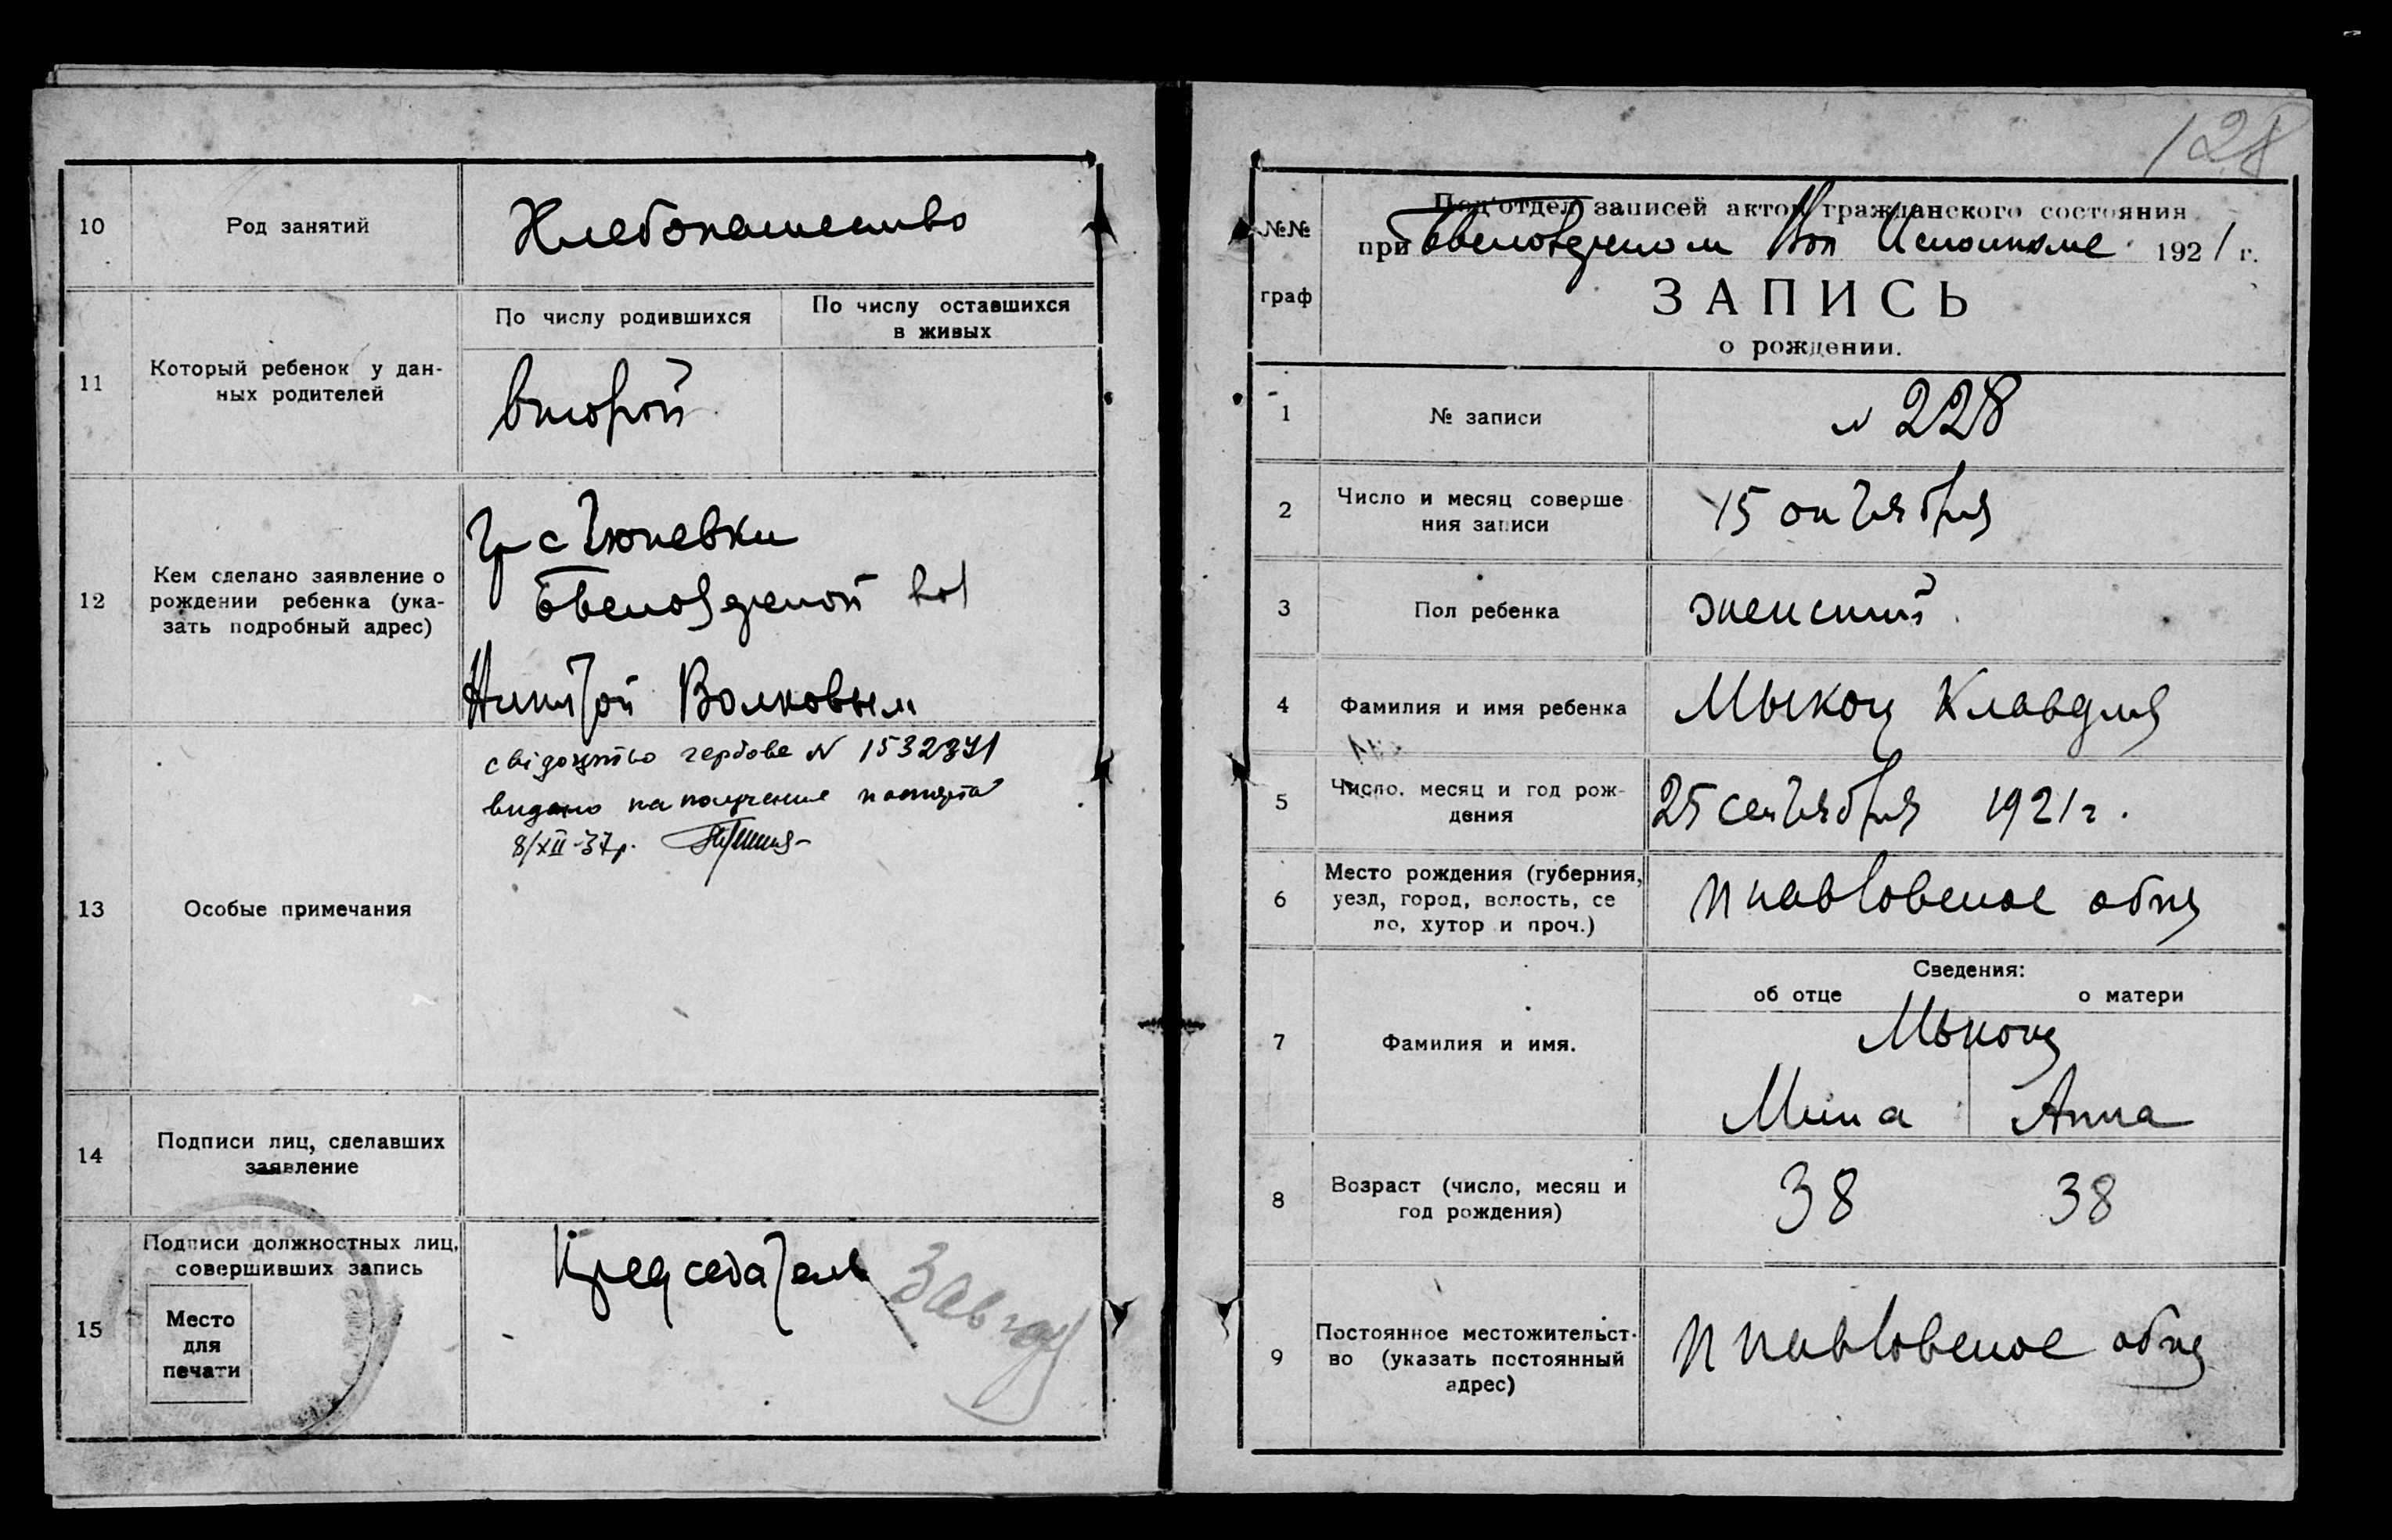 10
Род занятий
Хлебопашество
11
Который ребенок у дан-
ных родителей
По числу родившихся
По числу оставшихся
в живых
второй
12
Кем сделано заявление о
рождении ребенка (ука-
зать подробный адрес)
Гр с
вол
Никитой Волковым
13
Особые примечания
свідоцтво гербове N 1532371
видано на получение паспорта
8/XII-37р.
14
Подписи лиц, сделавших
заявление
15
Подписи должностных лиц,
совершивших запись
Место
для
печати
Председатель
128
№№
граф
Под'отдел записей актов гражданского состояния
при Вол Исполкоме 1921 г.
ЗАПИСЬ
о рождении.
1
№ записи
N 228
2
Число и месяц соверше
ния записи
15 октября
3
Пол ребенка
женский
4
Фамилия и имя ребенка
Мыкоц Клавдия
5
Число, месяц и год рож-
дения
25 сентября 1921 г.
6
Место рождения (губерния,
уезд, город, волость, се
ло, хутор и проч.)
7
Фамилия и имя.
Сведения:
об отце
о матери
Мыкоц
Мина
Анна
8
Возраст (число, месяц и
год рождения)
38
38
9
Постоянное местожительст-
во (указать постоянный
адрес)